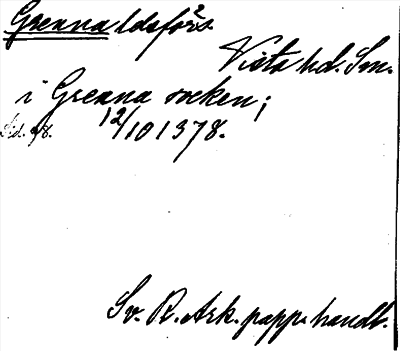 Grenna ldsförs.
Vista hd. Sm.
i Grenna socken;
12/10 1378.
Sv. R. Ark. papp. handl.